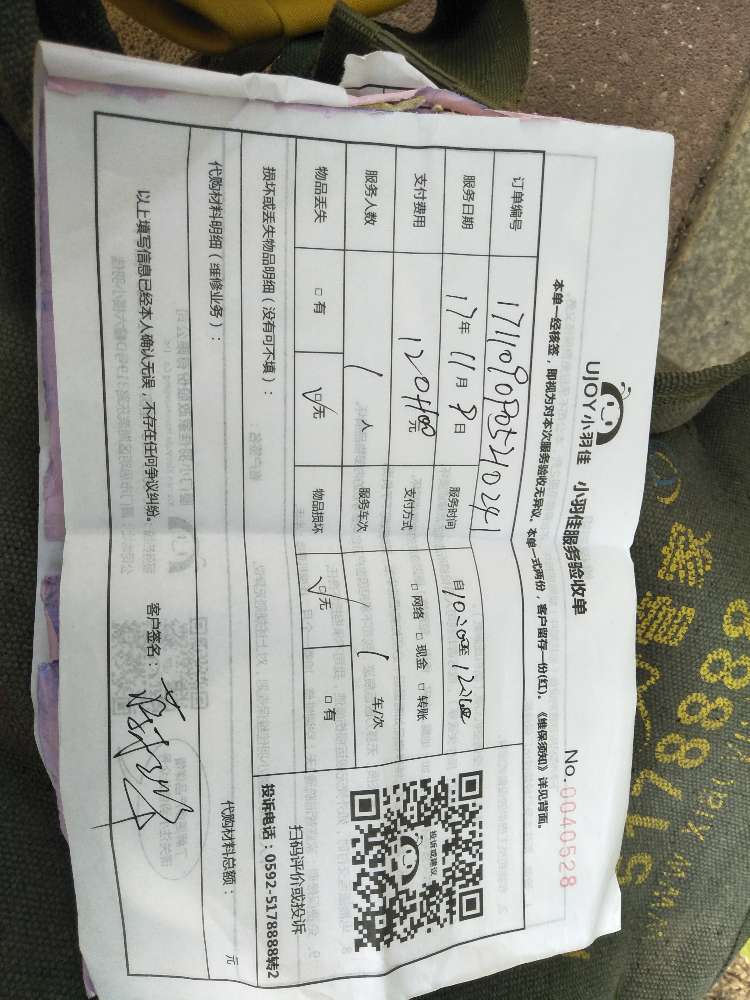 UJOY小羽佳 小羽佳服务验收单 No.0040528
本单一经核签，即视为对本次服务验收无异议。本单一式两份，客户留存一份(红)。《维保须知》详见背面。
订单编号
服务日期 17年11月8日 服务时间 自10:00至12:00
支付费用 120元 支付方式 □网络 □现金 □转账
服务人数 1人 服务车次 1车/次
物品丢失 □有 ☑无 物品损坏 ☑无 □有
损坏或丢失物品明细（没有可不填）：
扫码评价或投诉
投诉电话：0592-5178888转2
代购材料明细（维修业务）： 代购材料总额： 元
以上填写信息已经本人确认无误，不存在任何争议纠纷。 客户签名：
投诉或建议
5178888